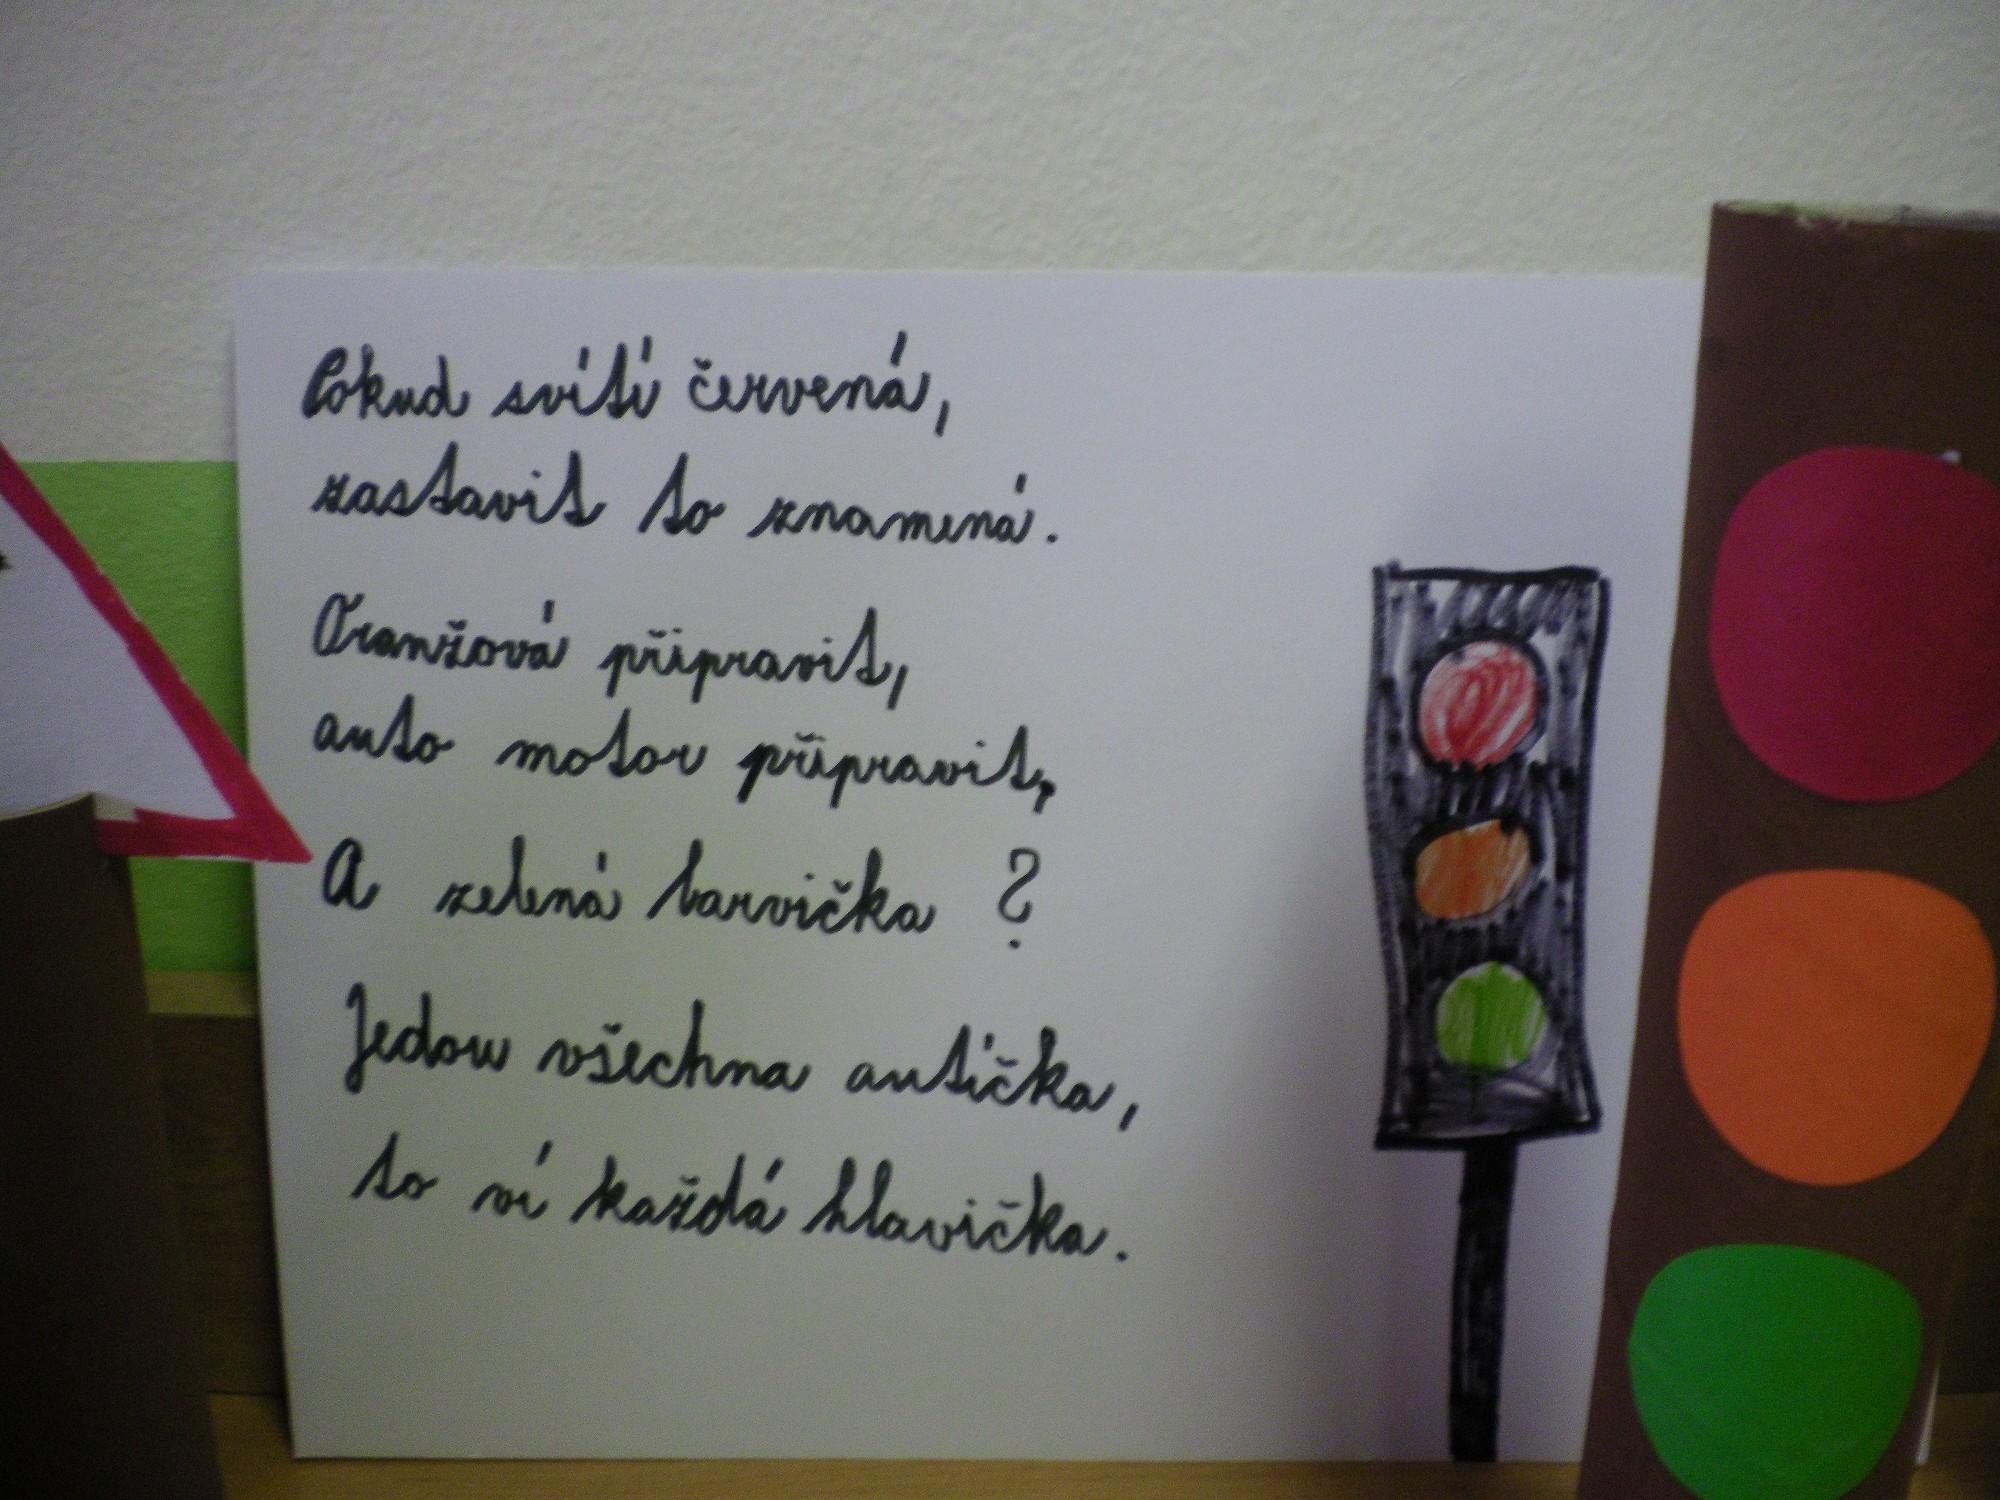 Pokud svítí červená,
zastavit to znamená.
Oranžová připravit,
auto motor připravit,
A zelená barvička?
Jedou všechna autíčka,
to ví každá hlavička.